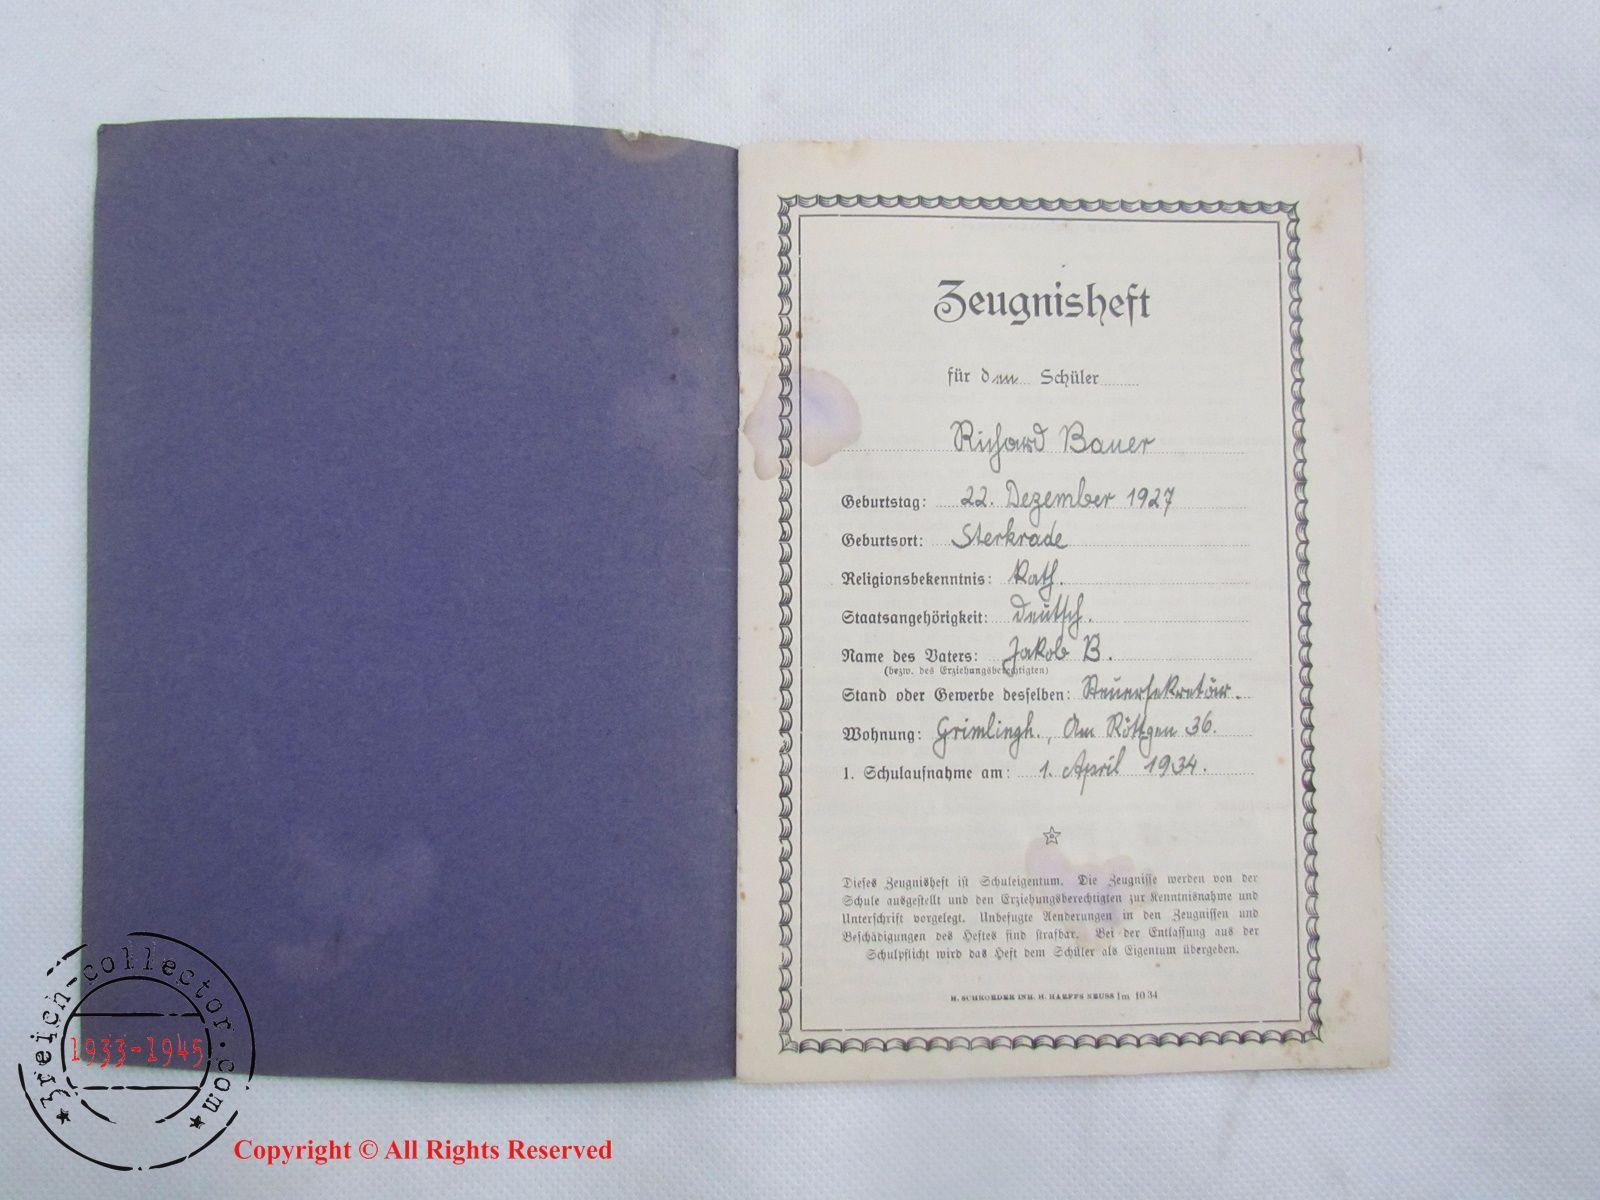 Zeugnisheft
für den Schüler
Richard Bauer
Geburtstag: 22. Dezember 1927
Geburtsort: Sterkrade
Religionsbekenntnis: Kath.
Staatsangehörigkeit: deutsch.
Name des Vaters: Jakob B.
(bezw. des Erziehungsberechtigten)
Stand oder Gewerbe desselben: Steuersekretär.
Wohnung: Grimlingh., Am Röttgen 36.
1. Schulaufnahme am: 1. April 1934.
Dieses Zeugnisheft ist Schuleigentum. Die Zeugnisse werden von der
Schule ausgestellt und den Erziehungsberechtigten zur Kenntnisnahme und
Unterschrift vorgelegt. Unbefugte Aenderungen in den Zeugnissen und
Beschädigungen des Heftes sind strafbar. Bei der Entlassung aus der
Schulpflicht wird das Heft dem Schüler als Eigentum übergeben.
H. SCHROEDER INH. H. HARFFS NEUSS 1m 10 34
3reich-collector.com
1933-1945
Copyright © All Rights Reserved